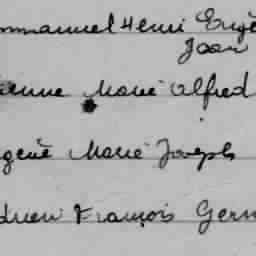 mmanuel Henri Eugè
Jean
ienne Marie Alfred
ugène Marie Joseph
drien François Germ